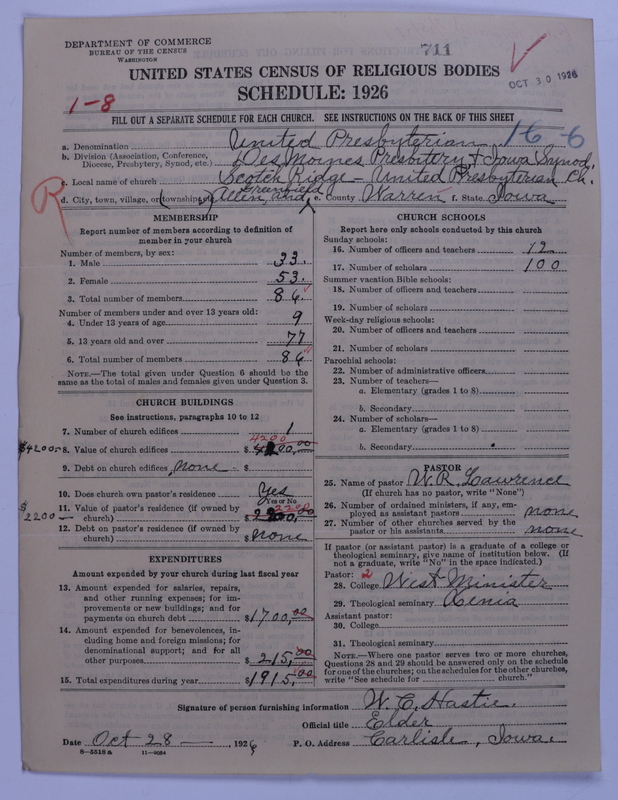 DEPARTMENT OF COMMERCE
BUREAU OF THE CENSUS
WASHINGTON
711
UNITED STATES CENSUS OF RELIGIOUS BODIES
OCT 30 1926
SCHEDULE: 1926
1-8
FILL OUT A SEPARATE SCHEDULE FOR EACH CHURCH. SEE INSTRUCTIONS ON THE BACK OF THIS SHEET
16-6
a. Denomination United Presbyterian
b. Division (Association, Conference, Diocese, Presbytery, Synod, etc.) Des Moines Presbytery & Iowa Synod.
c. Local name of church Scotch Ridge - United Presbyterian Ch.
R
d. City, town, village, or (township) of Allen, and Greenfield e. County Warren f. State Iowa
MEMBERSHIP
Report number of members according to definition of
member in your church
Number of members, by sex:
1. Male 33.
2. Female 53.
3. Total number of members 86
Number of members under and over 13 years old:
4. Under 13 years of age 9
5. 13 years old and over 77
6. Total number of members 86
NOTE.—The total given under Question 6 should be the
same as the total of males and females given under Question 3.
CHURCH BUILDINGS
See instructions, paragraphs 10 to 12
7. Number of church edifices 1
4200
$4200- 8. Value of church edifices $ 4200.00
9. Debt on church edifices, none - $
10. Does church own pastor's residence Yes
Yes or No
11. Value of pastor's residence (if owned by
$2200- church) $ 2200.00
2200
12. Debt on pastor's residence (if owned by
church) $ None
EXPENDITURES
Amount expended by your church during last fiscal year
13. Amount expended for salaries, repairs,
and other running expenses; for im-
provements or new buildings; and for
payments on church debt $ 1700,00
14. Amount expended for benevolences, in-
cluding home and foreign missions; for
denominational support; and for all
other purposes $ 215,00
15. Total expenditures during year $ 1915,00
CHURCH SCHOOLS
Report here only schools conducted by this church
Sunday schools:
16. Number of officers and teachers 12
17. Number of scholars 100
Summer vacation Bible schools:
18. Number of officers and teachers
19. Number of scholars
Week-day religious schools:
20. Number of officers and teachers
21. Number of scholars
Parochial schools:
22. Number of administrative officers
23. Number of teachers—
a. Elementary (grades 1 to 8)
b. Secondary
24. Number of scholars—
a. Elementary (grades 1 to 8)
b. Secondary
PASTOR
25. Name of pastor W. R. Lawrence
(If church has no pastor, write "None")
26. Number of ordained ministers, if any, em-
ployed as assistant pastors none
27. Number of other churches served by the
pastor or his assistants none
If pastor (or assistant pastor) is a graduate of a college or
theological seminary, give name of institution below. (If
not a graduate, write "No" in the space indicated.)
Pastor: 2
28. College West Minister
29. Theological seminary Xenia
Assistant pastor:
30. College
31. Theological seminary
NOTE.—Where one pastor serves two or more churches,
Questions 28 and 29 should be answered only on the schedule
for one of the churches; on the schedules for the other churches,
write "See schedule for church."
Signature of person furnishing information W. C. Hastie.
Official title Elder
Date Oct 28 —, 1926 P. O. Address Carlisle, Iowa.
8-5518a 11-9054